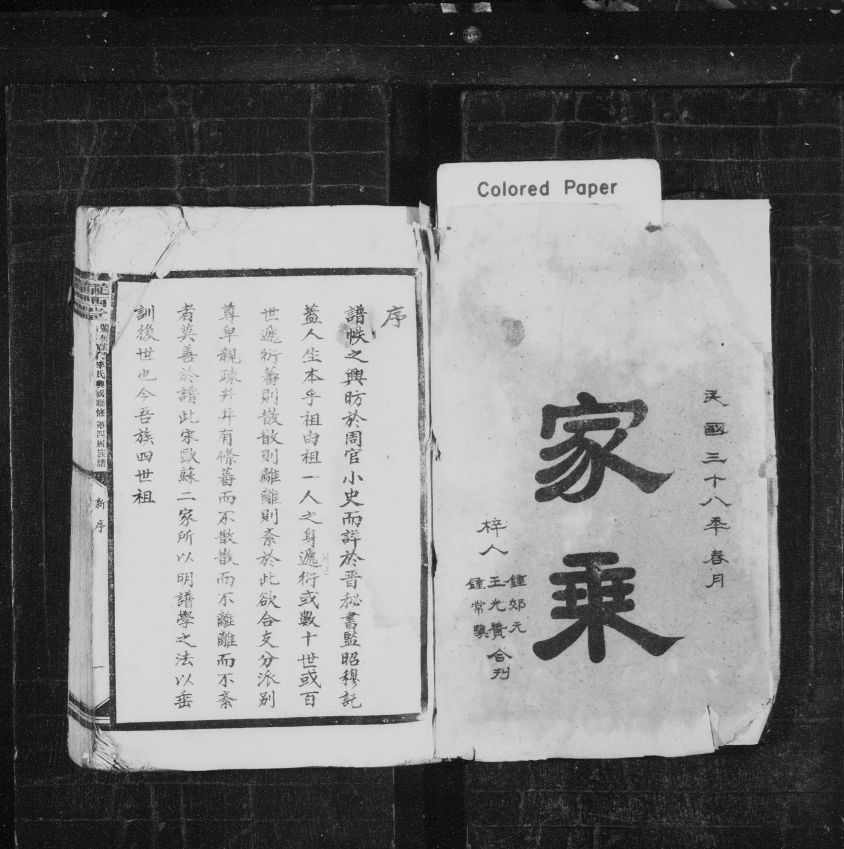 Colored Paper
民國三十八年春月
家乘
梓人
鍾郊元
王光贊合刊
鍾常驥
序
譜帙之興昉於周官小史而詳於晋秘書監昭穆記
蓋人生本乎祖由祖一人之身遞衍或數十世或百
世遞衍蕃則散散則離離則紊於此欲合支分派別
尊卑親疎井井有條蕃而不散散而不離離而不紊
者莫善於譜此宋歐蘇二家所以明譜學之法以垂
訓後世也今吾族四世祖
隴西堂
李氏興國聯修第四屆族譜
新序
一